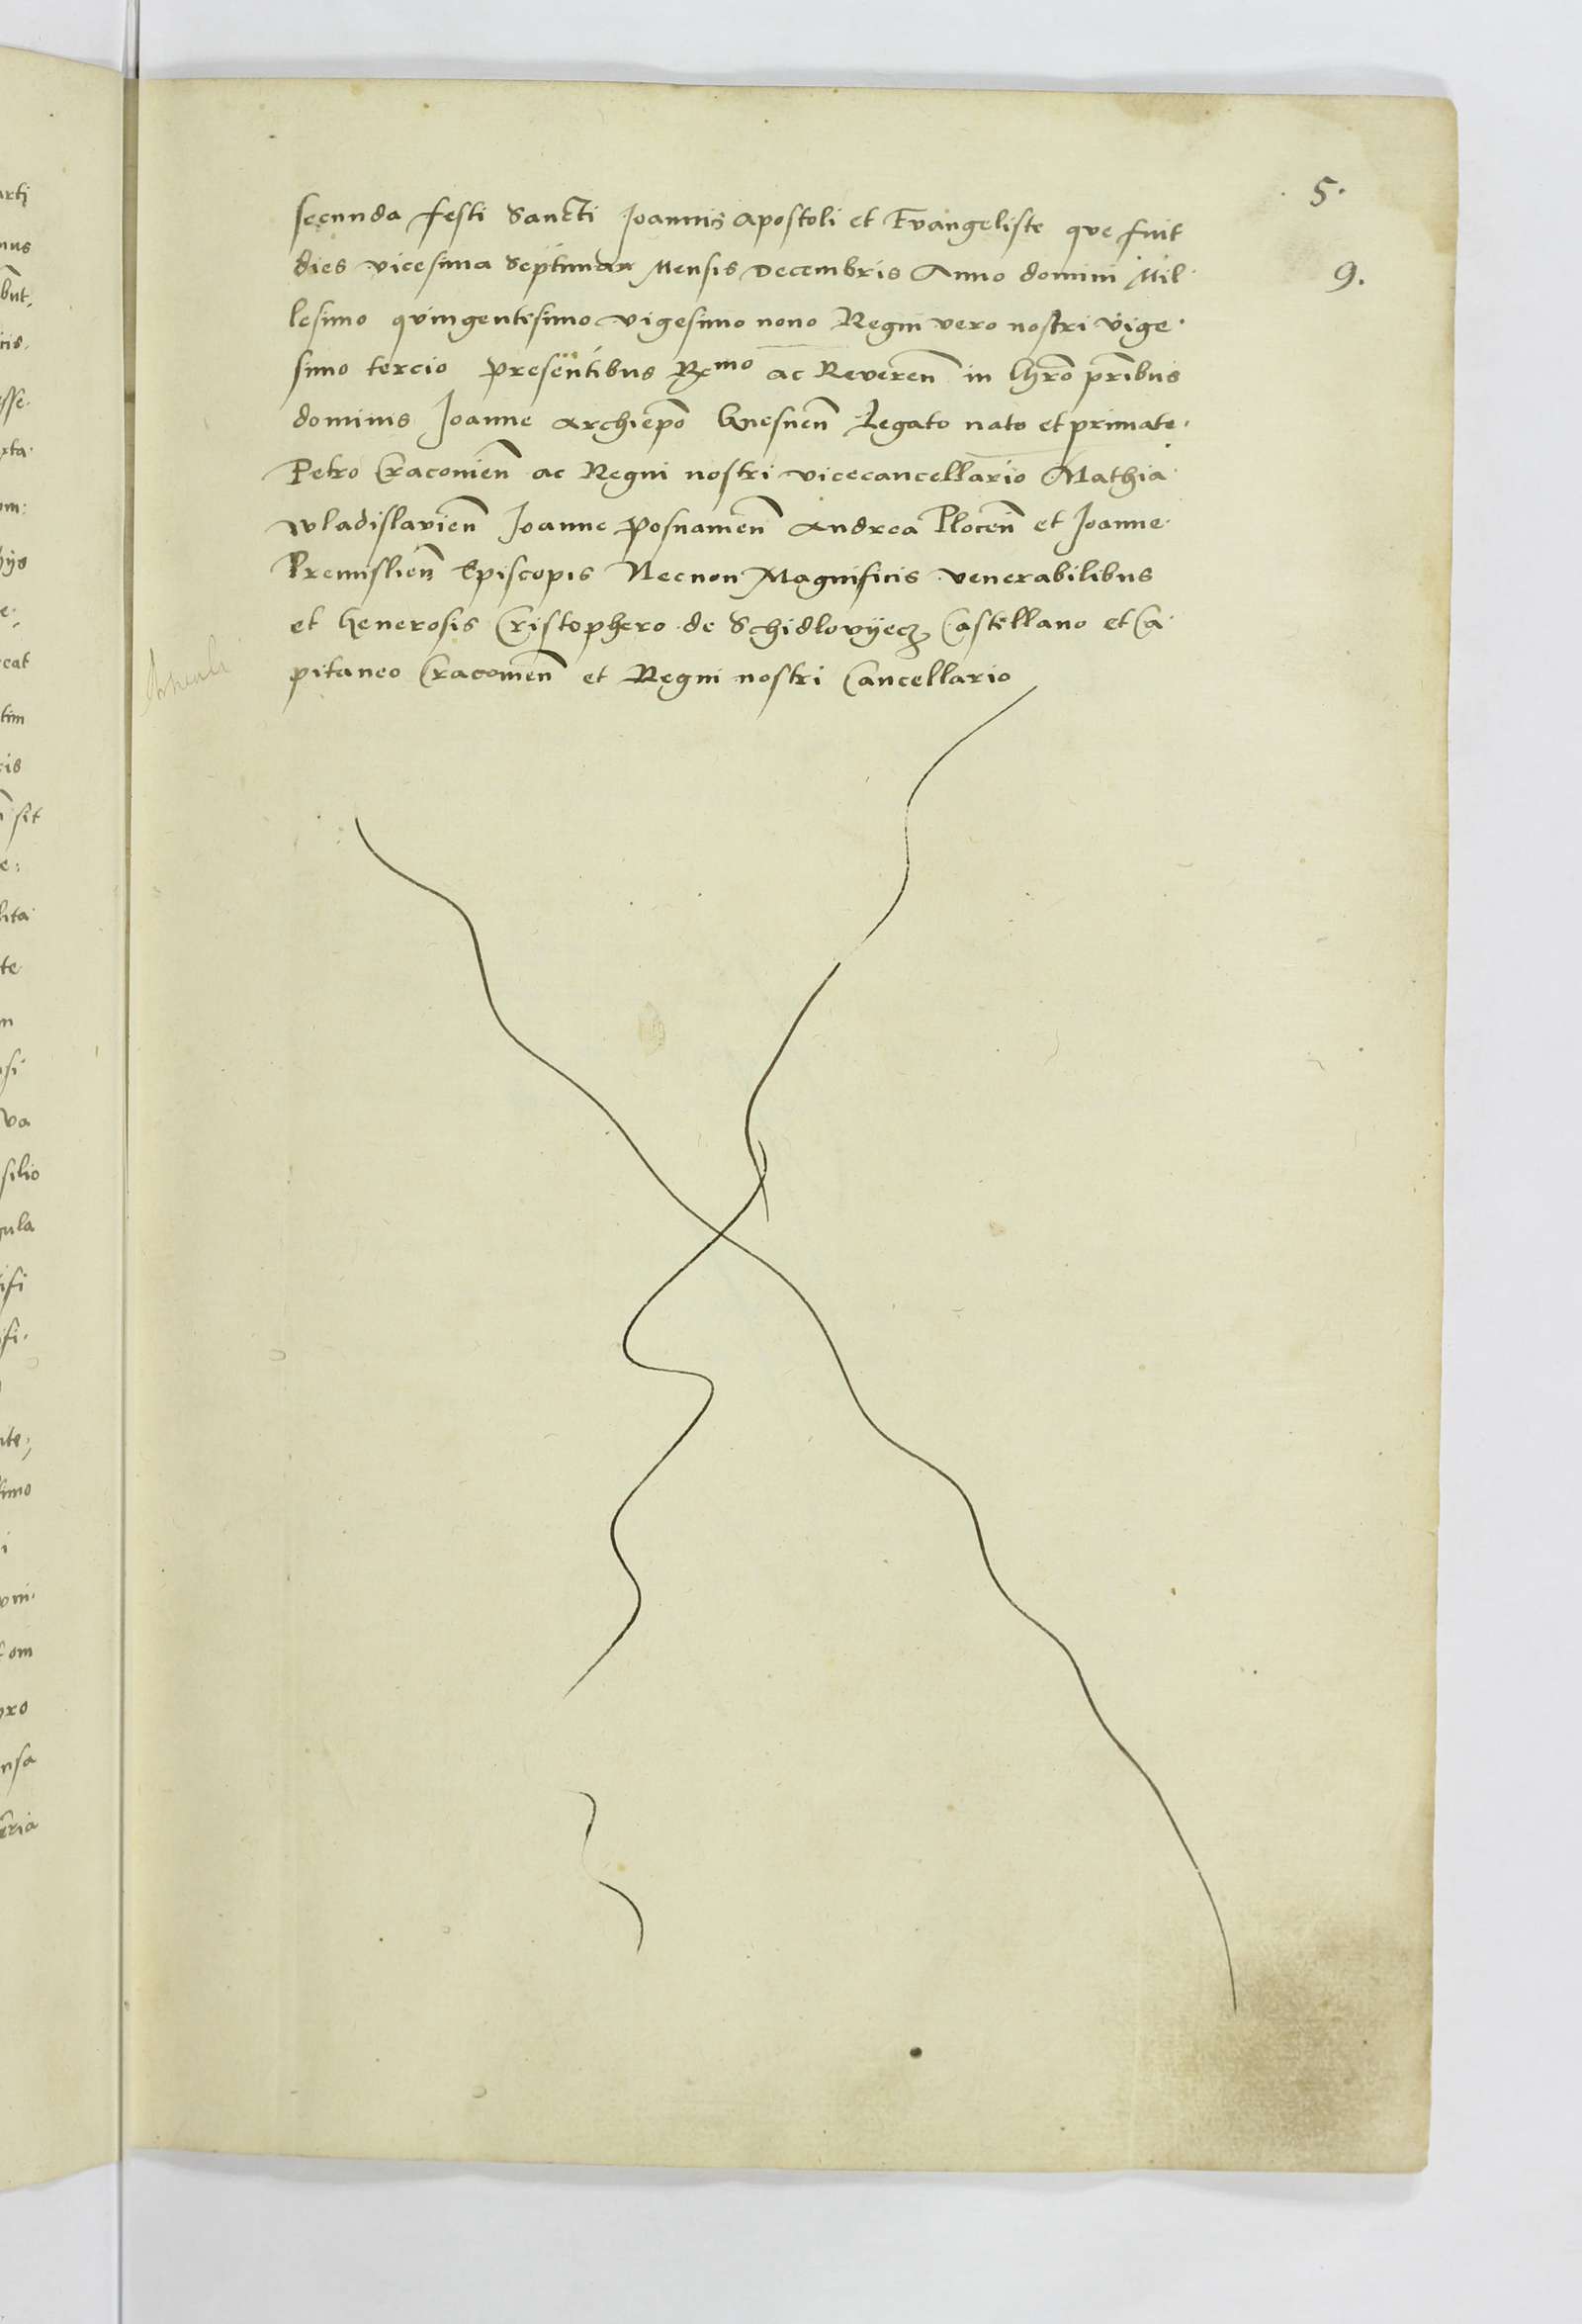 5.
secunda festi Sancti Joannis Apostoli et Evangeliste que fuit
dies vicesima Septima Mensis Decembris Anno domini Mil
9.
lesimo quingentisimo vigesimo nono Regni vero nostri vige
simo tercio presentibus Rmo ac Reveren in Chro pribus
dominis Joanne Archiepo Gnesnen Legato nato et primate
Petro Cracovien ac Regni nostri vicecancellario Mathia
Wladislavien Joanne Posnanien Andrea Plocen et Joanne
Premislien Episcopis Necnon Magnificis venerabilibus
et Generosis Cristophero de Schidlovyecz Castellano et Ca
pitaneo Cracovien et Regni nostri Cancellario